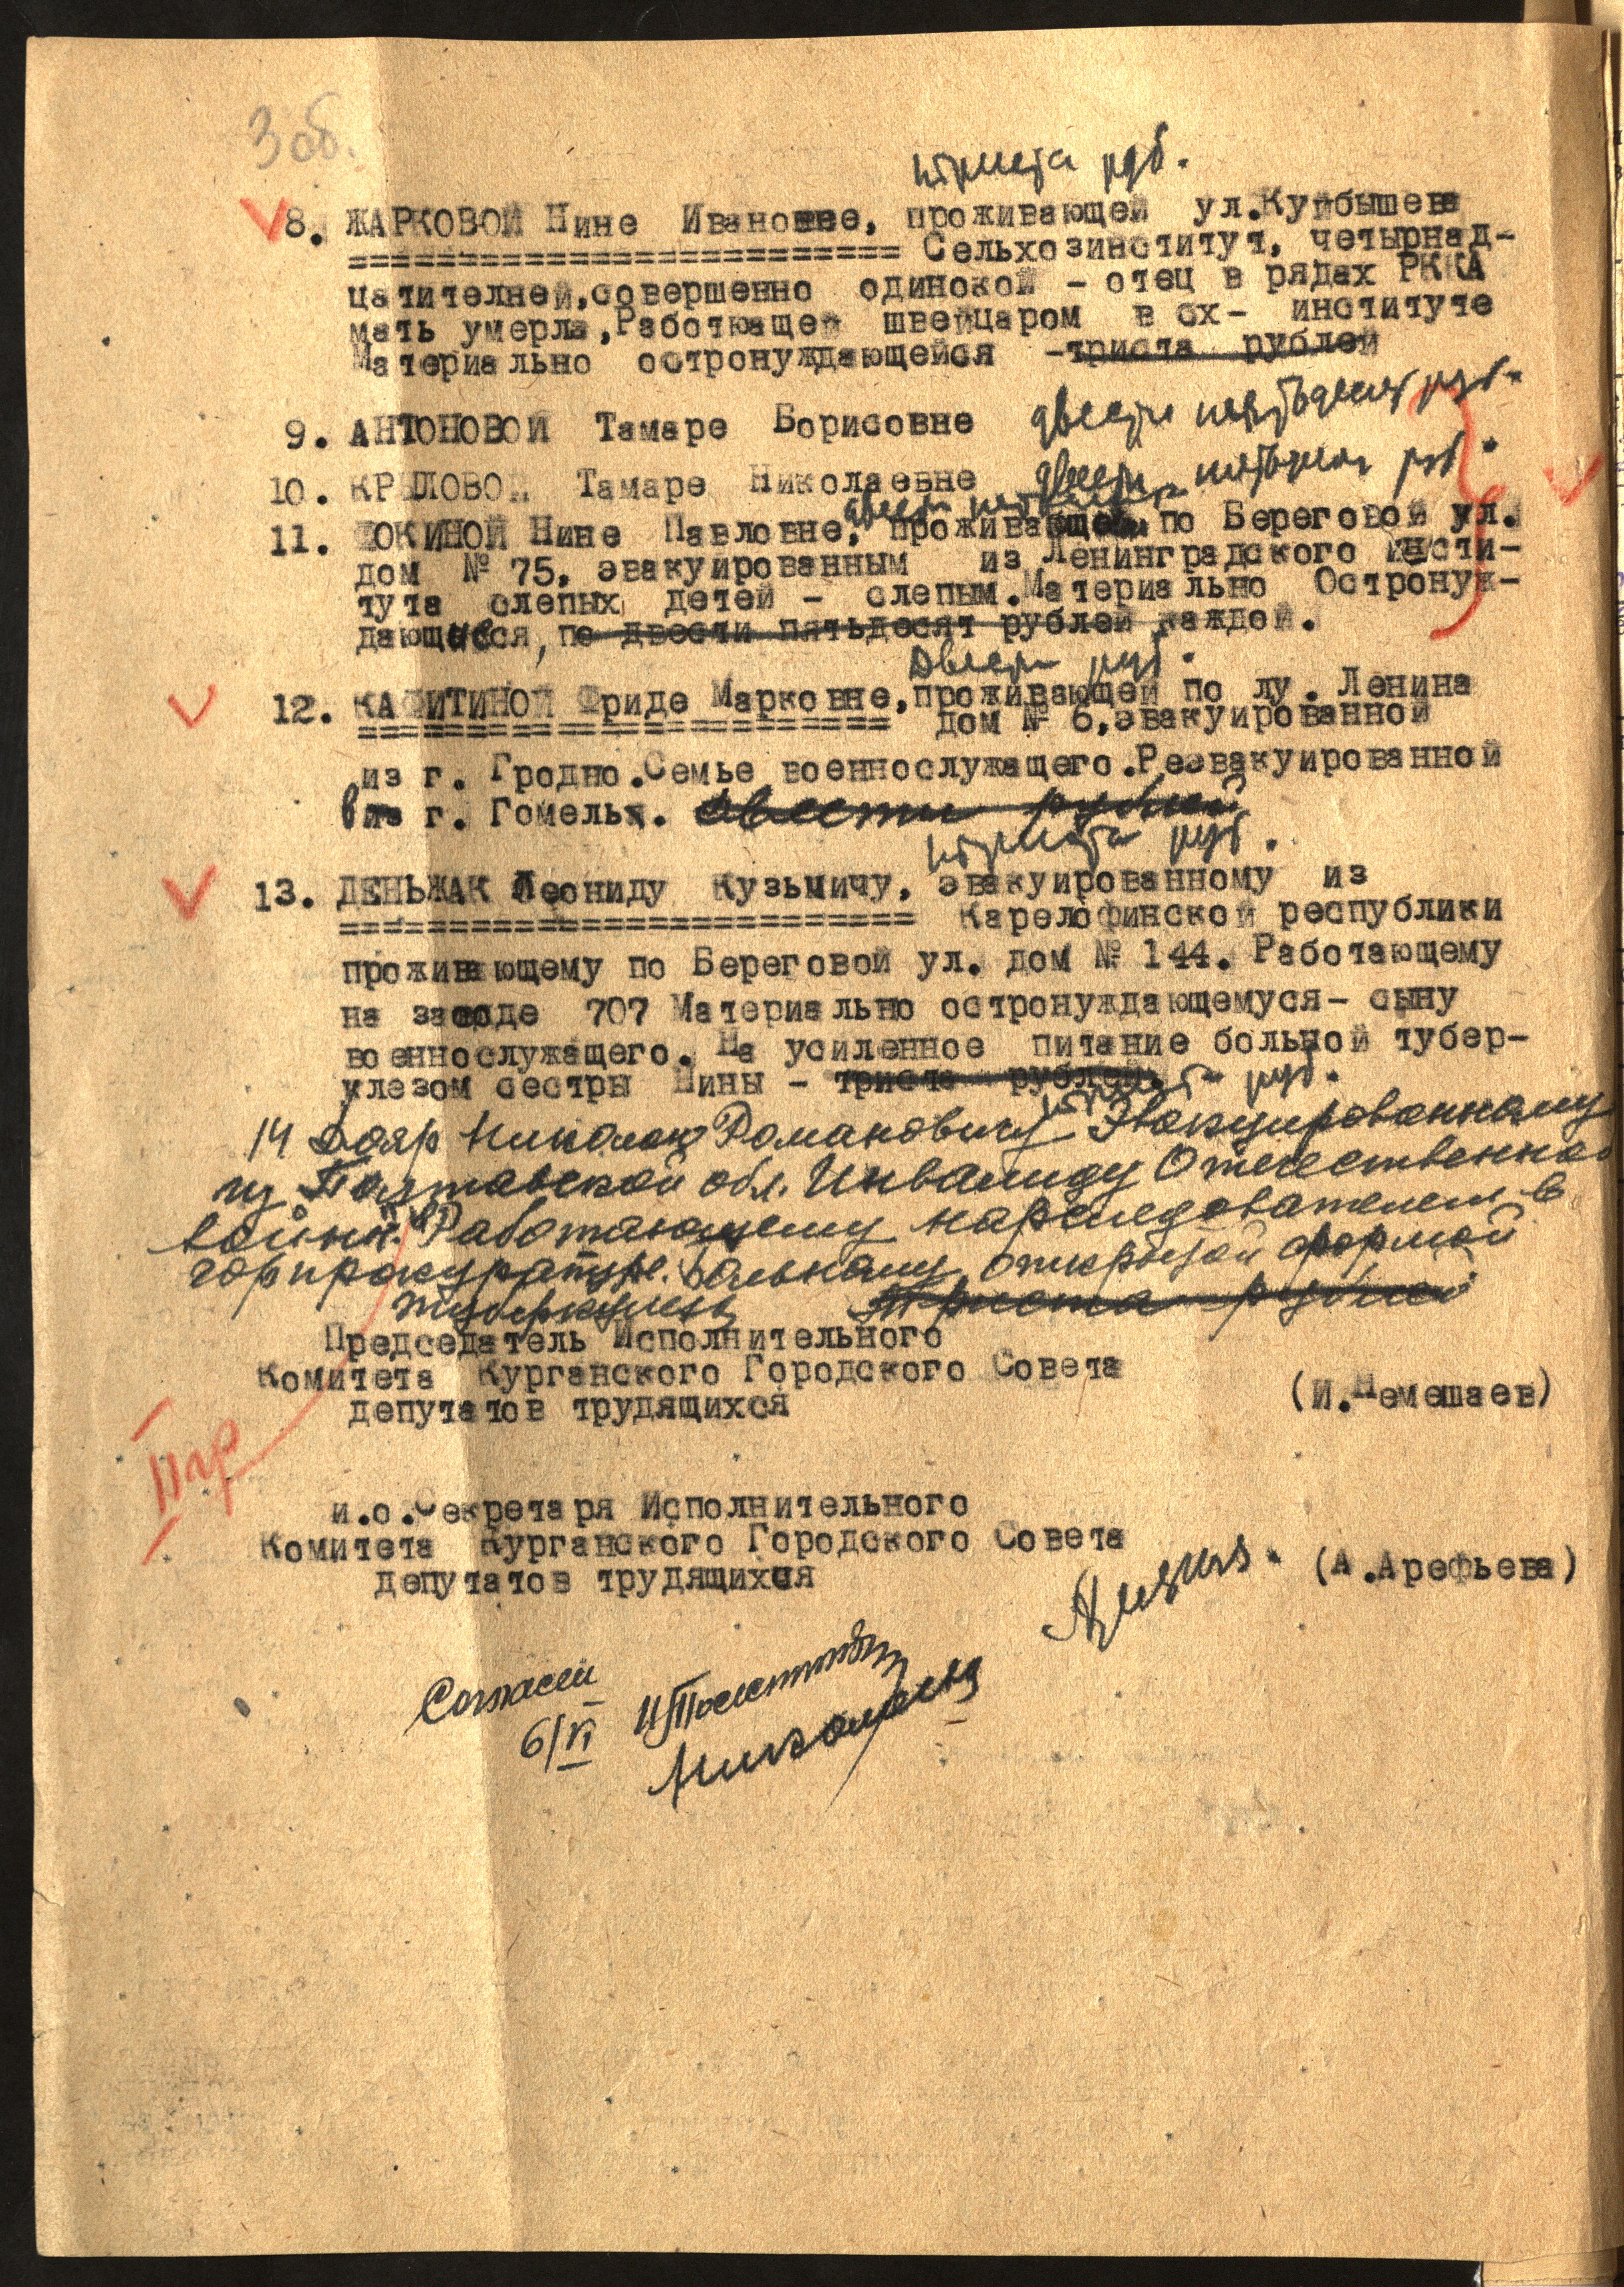 3 об.
триста руб.
8. ЖАРКОВОЙ Нине Ивановне, проживающей ул.Куйбышева
========================== Сельхозинститут, четырнад-
цатителней,совершенно одинокой - отец в рядах РККА
мать умерла,Работющей швейцаром в сх- институте
Материально остронуждающейся -триста рублей
9. АНТОНОВОЙ Тамаре Борисовне двести пятьдесят руб.
10. КРЫЛОВОЙ Тамаре Николаевне двести пятьдесят руб.
двести пятьдесят
11. ФОКИНОЙ Нине Павловне, проживающей по Береговой ул.
дом № 75, эвакуированным из Ленинградского инсти-
тута слепых детей - слепым.Материально Остронуж-
дающиеся, по двести пятьдесят рублей каждой.
Двести руб.
12. КАФИТИНОЙ Фриде Марковне,проживающей по лу. Ленина
========================= дом № 6,эвакуированной
из г. Гродно.Семье военнослужащего.Реэвакуированной
в г. Гомель. двести рублей
триста руб.
13. ДЕНЬЖАК Леониду Кузьмичу, эвакуированному из
=========================== Карелофинской республики
проживающему по Береговой ул. дом № 144. Работающему
на заводе 707 Материально остронуждающемуся- сыну
военнослужащего. На усиленное питание больной тубер-
улезом сестры Нины - триста рублей.
триста руб.
14 Бояр Николаю Романовичу Эвакуированному
из Полтавской обл. Инвалиду Отечественной
войны. Работающему нарследователем в
горпрокуратуре. Больному открытой формой
туберкулеза триста рублей
Председатель Исполнительного
Комитета Курганского Городского Совета
депутатов трудящихся (И.Немешаев)
II гр
и.о.Секретаря Исполнительного
Комитета Курганского Городского Совета
депутатов трудящихся (А.Арефьева)
Согласен
6/VI